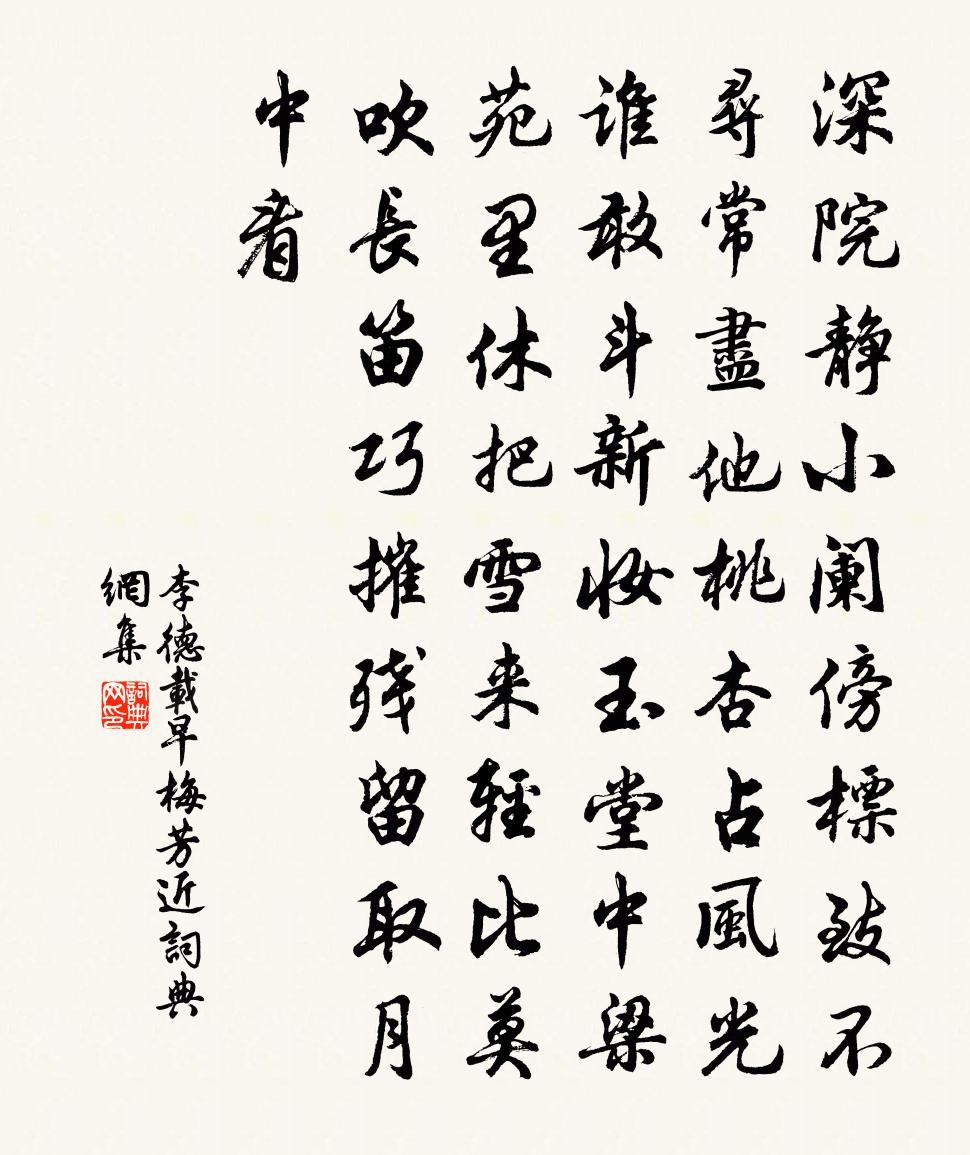 深院静小阑傍標致不
尋常盡他桃杏占風光
谁敢斗新妝玉堂中梁
苑里休把雪来輕比莫
吹長笛巧摧残留取月
中看
李德載早梅芳近詞典
網集
詞典
网印